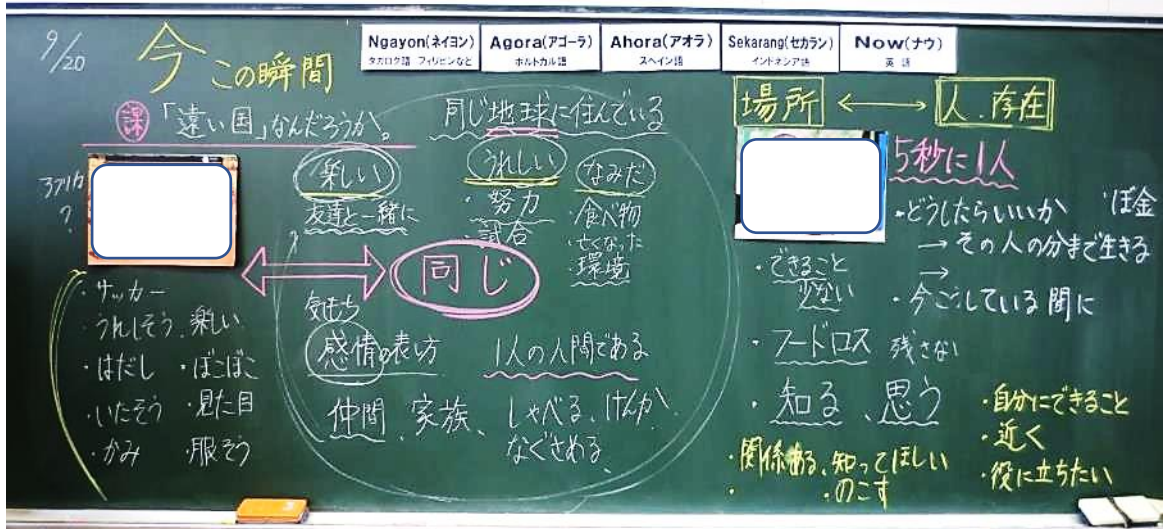 9/20
今 この瞬間
Ngayon(ネイヨン)
タガログ語 フィリピンなど
Agora(アゴーラ)
ポルトガル語
Ahora(アオラ)
スペイン語
Sekarang(セカラン)
インドネシア語
Now(ナウ)
英語
課 「遠い国」なんだろうか。
アフリカ
?
・サッカー
・うれしそう 楽しい
・はだし ・ぼこぼこ
・いたそう ・見た目
・かみ ・服そう
同じ地球に住んでいる
楽しい
友達と一緒に
うれしい
・努力
・試合
なみだ
・食べ物
・亡くなった
・環境
同じ
気もち
感情の表し方
1人の人間である
仲間、家族、しゃべる、けんか、
なぐさめる、
場所 ⟷ 人、存在
5秒に1人
・どうしたらいいか ・ぼ金
→ その人の分まで生きる
→
・今こうしている間に
・できること
少ない
・フードロス 残さない
・知る、思う
・関係ある、知ってほしい
・ ・のこす
・自分にできること
・近く
・役に立ちたい